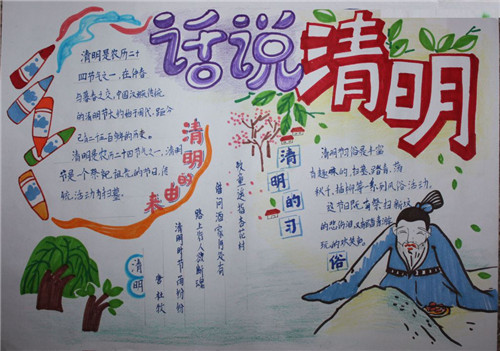 话说清明
清明是农历二十
四节气之一，在仲春
与暮春之交，中国汉族传统
的清明节大约始于周代，距今
已有二千五百多年的历史。
清明是农历二十四节气之一，清明
节是一个祭祀祖先的节日，传
统活动为扫墓。
清明的由来
清明
唐 杜牧
清明时节雨纷纷
路上行人欲断魂
借问酒家何处有
牧童遥指杏花村
清明的习俗
清明节的习俗是丰富
有趣的，扫墓、踏青、荡
秋千、插柳等一系列风俗活动。
这节日既有祭扫新坟
的悲伤泪，又有踏青游
玩的欢笑声。